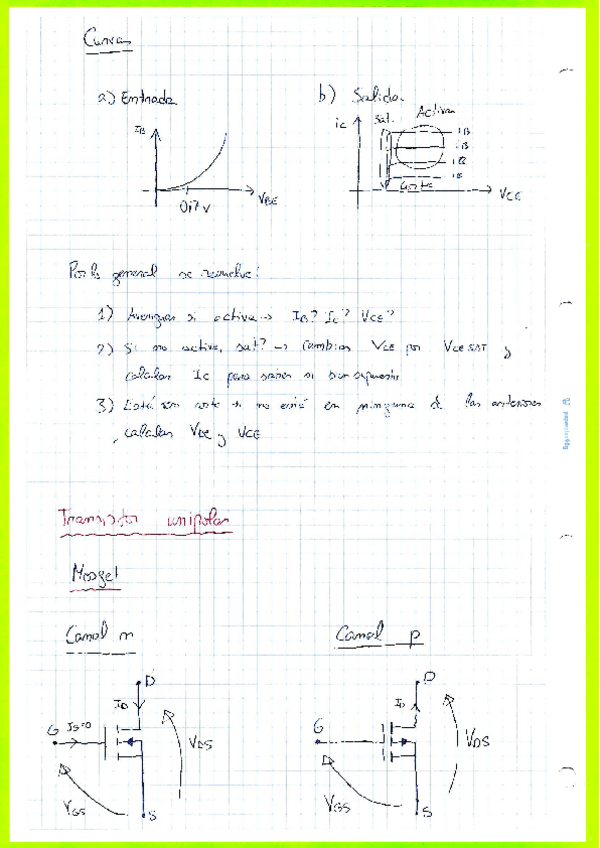 Curvas
a) Entrada
b) Salida
IB
0,7 V
VBE
ic
Sat.
Activa
iB
iB
iB
iB
Corte
VCE
Por lo general se resuelve:
1) Averiguar si activa → IB? Ic? VCE?
2) Si no activa, sat? → Cambiar VCE por VCE SAT y
calcular Ic para saber si
3) Está en corte si no está en ninguna de las anteriores
, calcular VBE y VCE
Transistor unipolar
Mosfet
Canal n
Canal p
D
ID
G
IG=0
VDS
VGS
S
D
ID
G
VDS
VGS
S